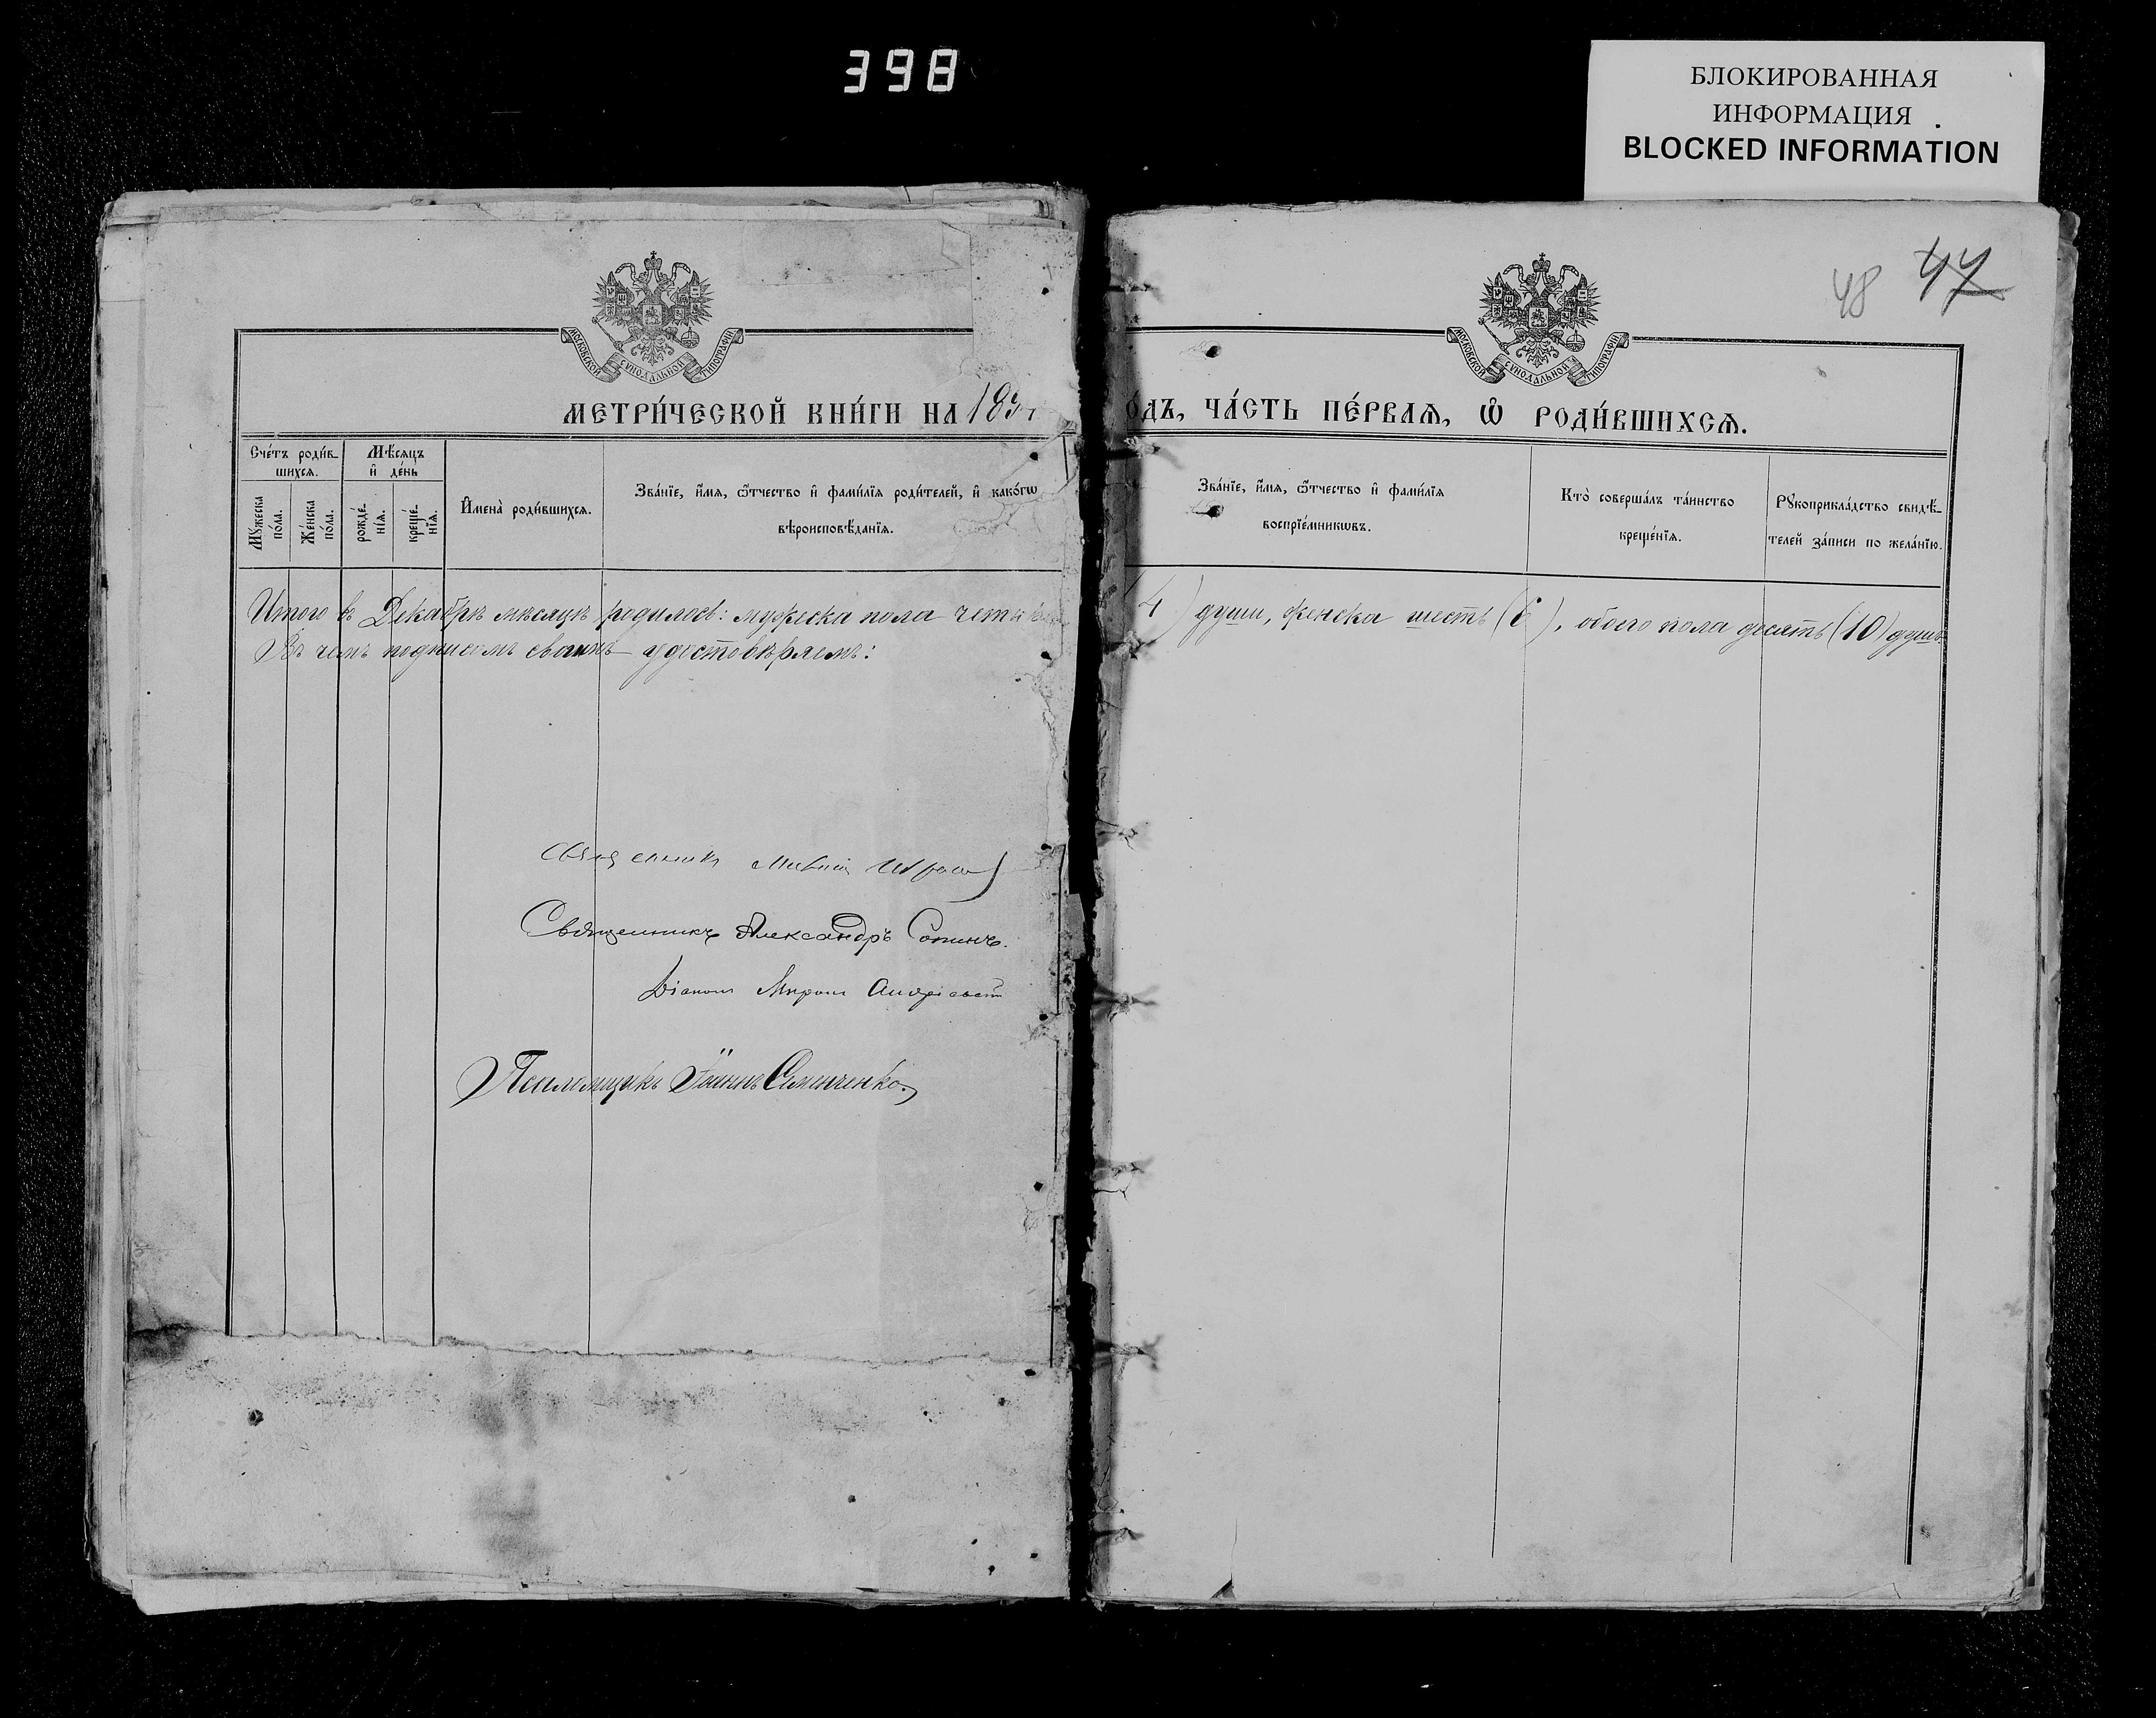 398
БЛОКИРОВАННАЯ
ИНФОРМАЦИЯ
BLOCKED INFORMATION
48 47
МОСКОВСКОЙ СУНОДАЛЬНОЙ ТИПОГРАФІИ
МОСКОВСКОЙ СУНОДАЛЬНОЙ ТИПОГРАФІИ
МЕТРИ́ЧЕСКОЙ КНИ́ГИ НА 189
О́ДЪ, ЧА́СТЬ ПЕ́РВАѦ, Ѡ҆ РОДИ́ВШИХСѦ.
Сче́тъ роди́в-
шихсѧ.
Мѣ́сѧцъ
и҆ де́нь
Мꙋ́жеска
по́ла.
Же́нска
по́ла.
рожде́-
нїѧ.
креще́-
нїѧ.
И҆мена̀ роди́вшихсѧ.
Зва́нїе, и҆́мѧ, ѻ҆́тчество и҆ фами́лїѧ роди́телей, и҆ како́гѡ
вѣроисповѣ́данїѧ.
Зва́нїе, и҆́мѧ, ѻ҆́тчество и҆ фами́лїѧ
воспрїе́мникѡвъ.
Кто̀ соверша́лъ та́инство
креще́нїѧ.
Рꙋкоприкла́дство свидѣ́-
телей за́писи по жела́нїю.
Итого въ Декабрѣ мѣсяцѣ родилось: мужеска пола четы 4) души, женска шесть (6), обоего пола десять (10) душъ
Въ чемъ подписомъ своимъ удостовѣряемъ:
Священникъ
Священникъ Александръ Сопинъ.
Діаконъ Миронъ
Псаломщикъ Іоаннъ Симченко.